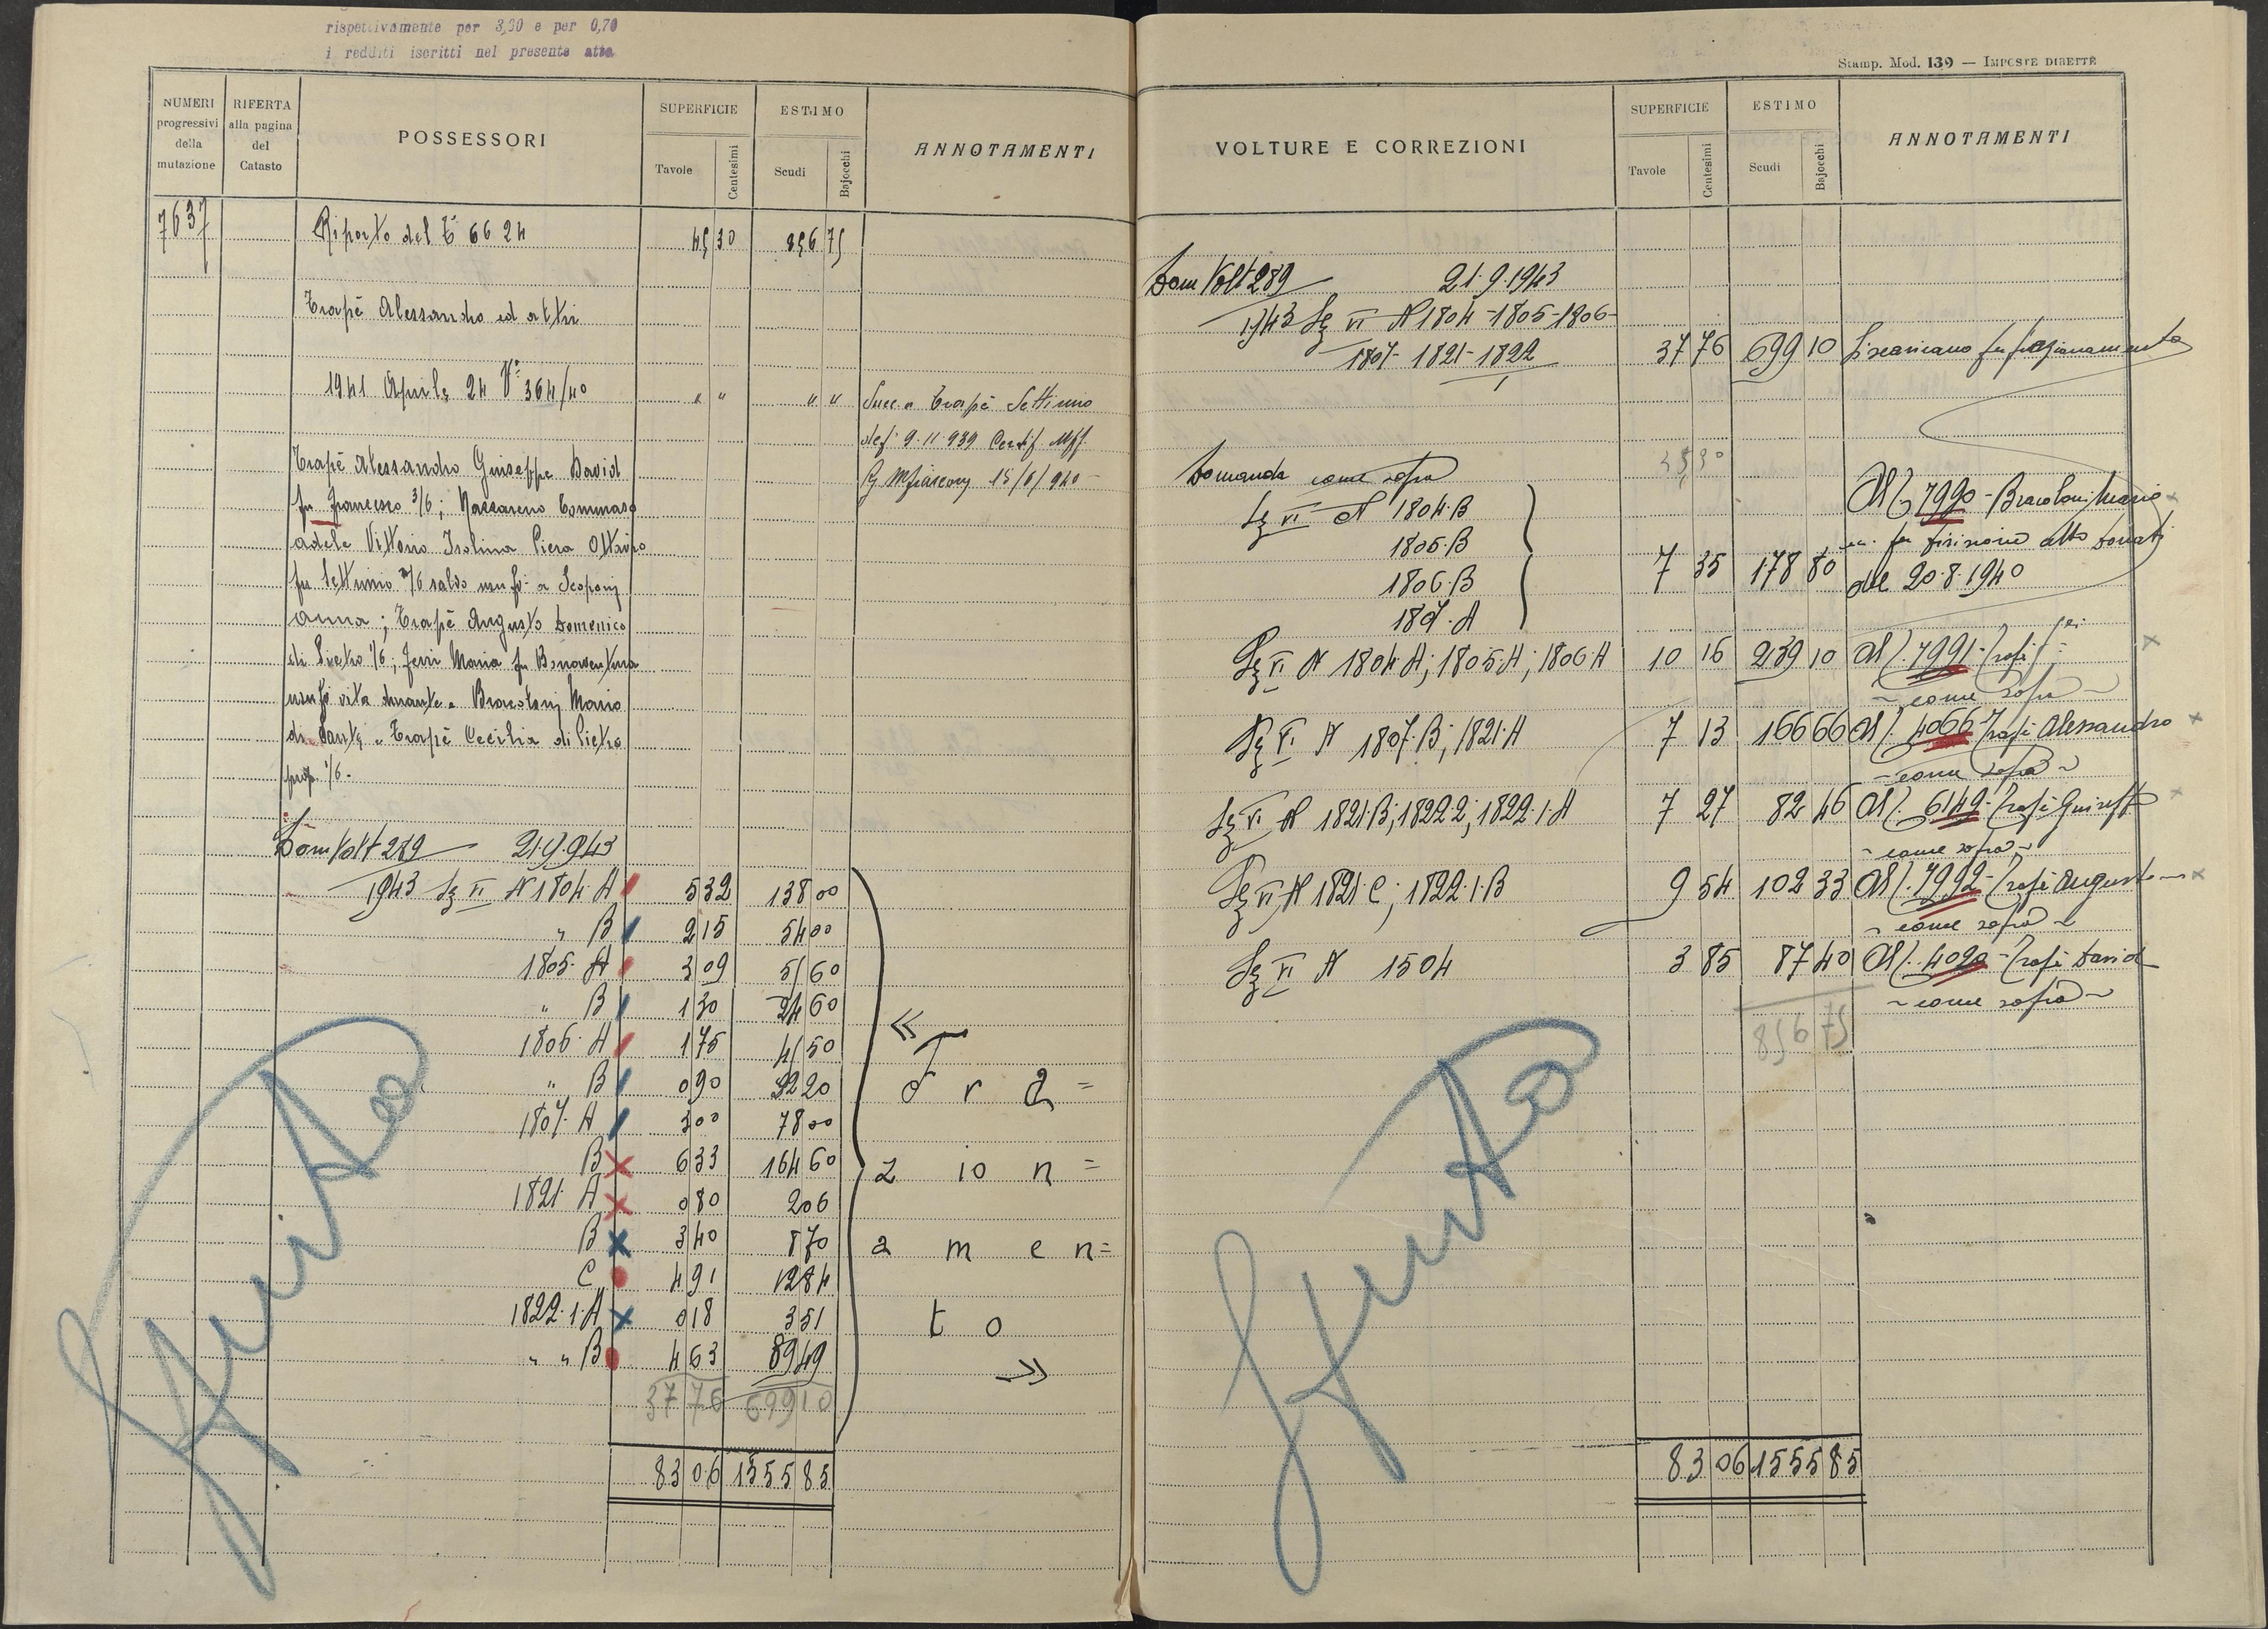 rispettivamente per 3,30 e per 0,70
i redditi iscritti nel presente atto
NUMERI progressivi della mutazione
RIFERTA alla pagina del Catasto
POSSESSORI
SUPERFICIE
Tavole
Centesimi
ESTIMO
Scudi
Bajocchi
ANNOTAMENTI
7637 Riporto del T 6624 45 30 856 75
Trapè Alessandro ed altri
1941 Aprile 24 V 364/40 " " " " Succ. a Trapè Settimio
def. 9.11.939 Certif. Uff.
15/6/940
Trapè Alessandro Giuseppe David
fu Francesco 3/6; Nazzareno Tommaso
Adele Vittorio Isolina Piera
fu Settimio 1/6 salvo usuf. a
Anna; Trapè Augusto Domenico
di Pietro 1/6; Maria fu Bonaventura
usuf. vita durante e Mario
di Sante e Trapè Cecilia di Pietro
prop. 1/6.
Dom Volt 289 21.9.943
1943 Sz VI N 1804.A 5 32 138 00
" B 2 15 54 00
1805.A 3 09 51 60
" B 1 30 24 60
1806.A 1 75 4 50
" B 0 90 22 20
1807.A 3 00 78 00
B 6 33 164 60
1821.A 0 80 2 06
B 3 40 8 70
C 4 91 12 84
1822.1.A 0 18 3 51
" " B 4 63 89 49
37 76 699 10
« Fra=
zion=
amen=
to
»
83 06 1555 85
Stamp. Mod. 139 — IMPOSTE DIRETTE
VOLTURE E CORREZIONI
SUPERFICIE
Tavole
Centesimi
ESTIMO
Scudi
Bajocchi
ANNOTAMENTI
Dom Volt 289 21.9.1943
1943 Sz VI N 1804-1805-1806-
1807-1821-1822 37 76 699 10 Si scaricano per frazionamento
Domanda come sopra
Sz VI N 1804.B
1805.B
1806.B
1807.A
7 35 178 80
Al T. 7990 - Mario
per divisione atto Donati
del 20.8.1940
Sz VI N 1804.A; 1805.A; 1806.A 10 16 239 10 Al T. 7991 - Trapè
~ come sopra ~
Sz VI N 1807.B; 1821.A 7 13 166 66 Al T. 4066 Trapè Alessandro
~ come sopra ~
Sz VI N 1821.B; 1822.2; 1822.1.A 7 27 82 46 Al T. 6142 - Trapè Giuseppe
~ come sopra ~
Sz VI N 1821.C; 1822.1.B 9 54 102 33 Al T. 7992 - Trapè Augusto
~ come sopra ~
Sz VI N 1504 3 85 87 40 Al T. 4020 - Trapè David
~ come sopra ~
856 75
83 06 1555 85